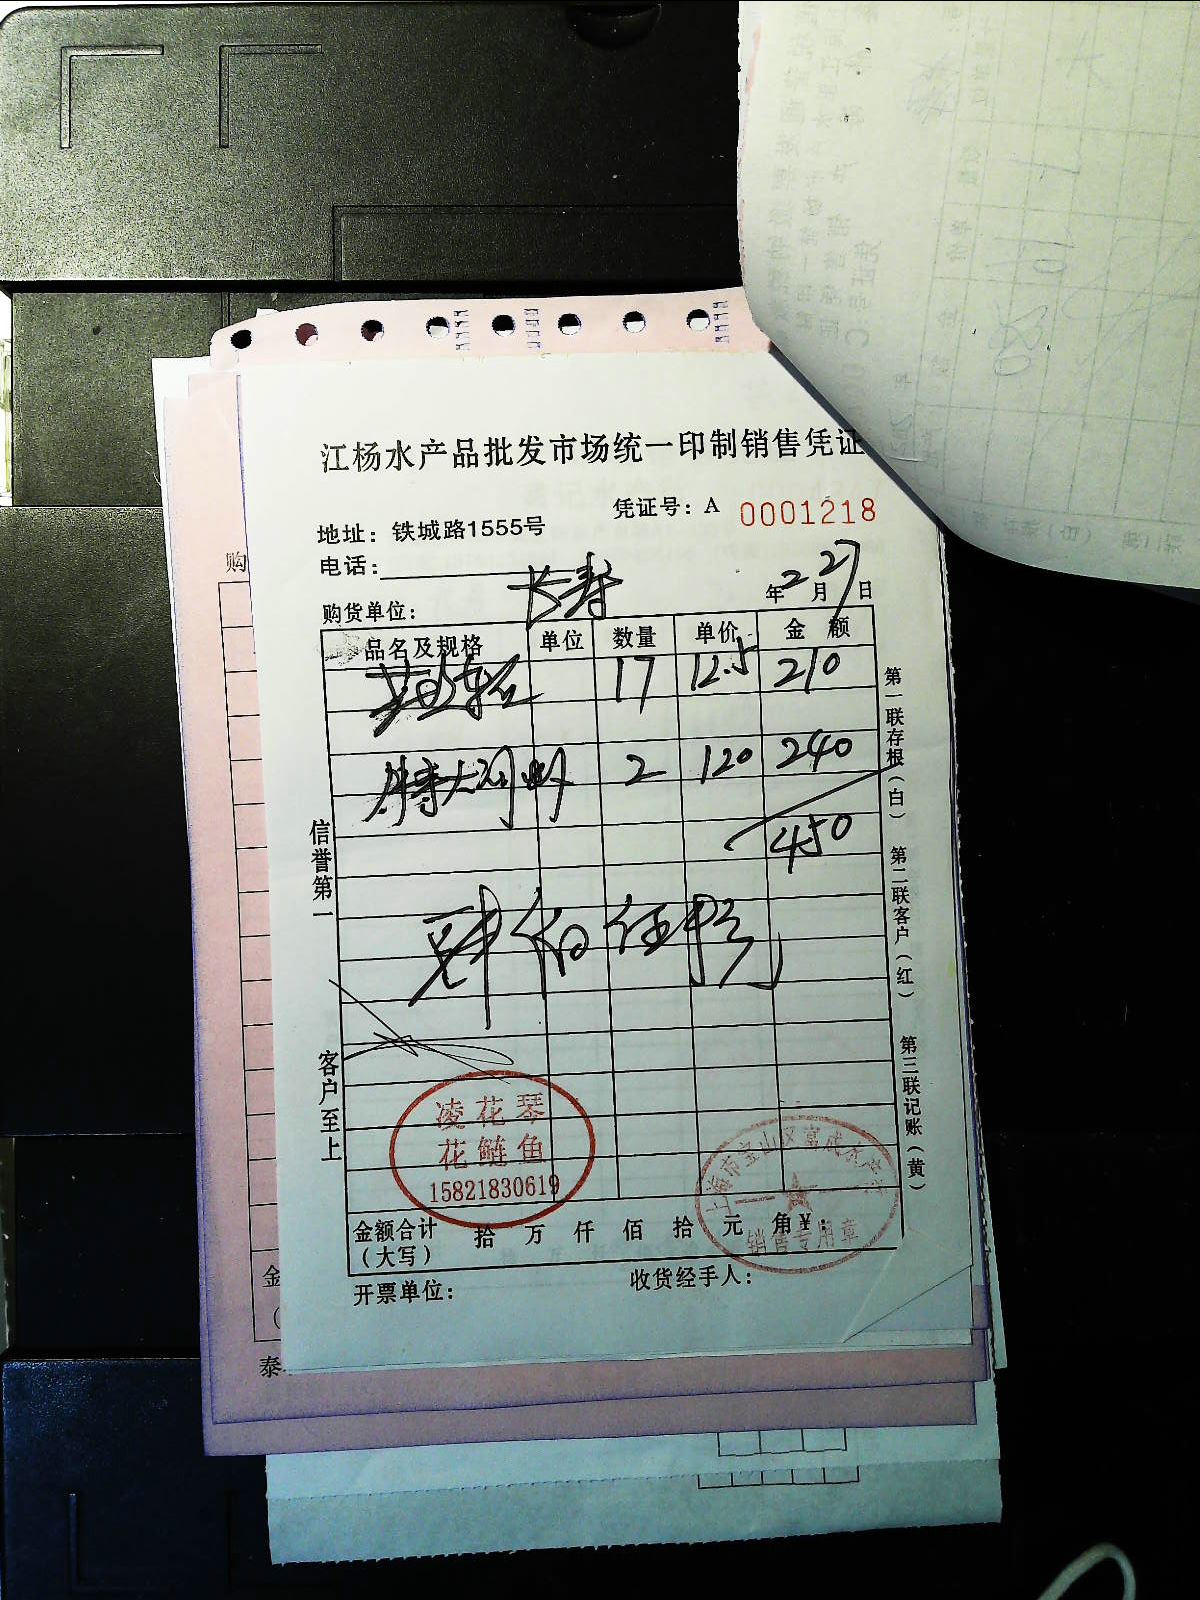 江杨水产品批发市场统一印制销售凭证
凭证号：A 0001218
地址：铁城路1555号
电话：
购货单位： 长寿
年2月27日
品名及规格 单位 数量 单价 金额
17 12.5 210
特大河虾 2 120 240
450
肆佰伍拾元
信誉第一
客户至上
第一联存根（白）
第二联客户（红）
第三联记账（黄）
凌花琴
花鲢鱼
15821830619
销售专用章
金额合计 拾 万 仟 佰 拾 元 角 ¥：
（大写）
开票单位：
收货经手人：
购
金
泰